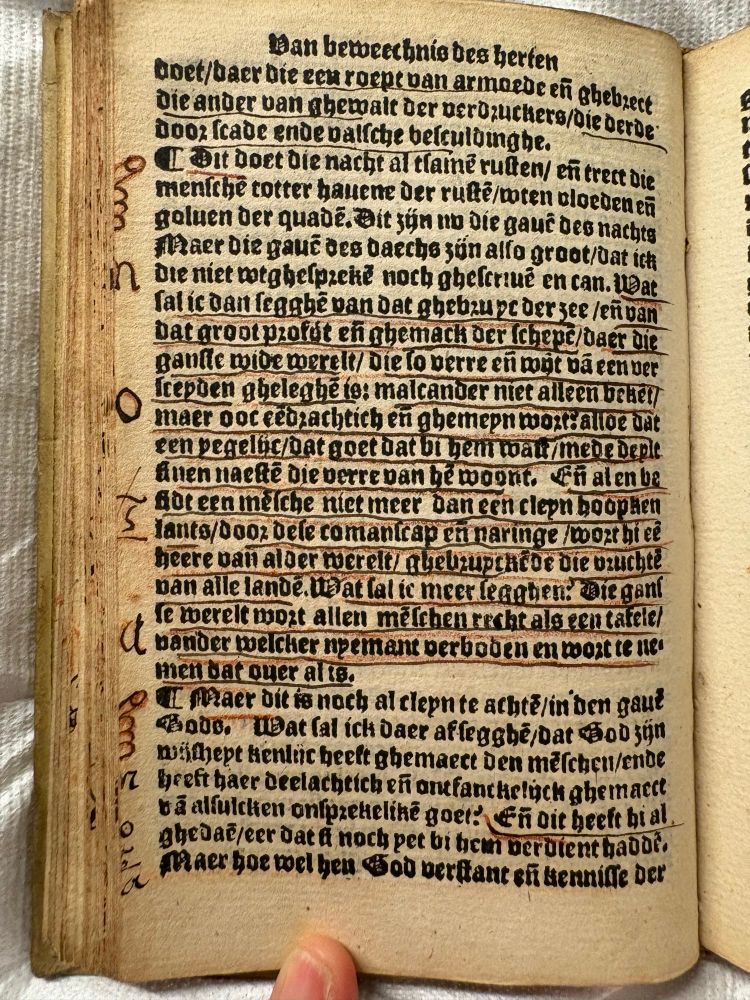 Van beweechnis des herten
doet/daer die een roept van armoede eñ ghebrect
die ander van ghewalt der verdruckers/die derde
door scade ende valsche besculdinghe.
¶ Dit doet die nacht al tsamē rusten/ eñ trect die
menschē totter hauene der rustē/wten vloeden eñ
goluen der quadē. Dit zijn nv die gauē des nachts
Maer die gauē des daechs zijn also groot/dat ick
die niet wtghesprekē noch ghescriuē en can. Wat
sal ic dan segghē van dat ghebruyc der zee /eñ van
dat groot profijt eñ ghemack der schepē/daer die
gansse wide werelt/ die so verre eñ wijt vā een ver
sceyden gheleghē is: malcander niet alleen bekēt/
maer ooc eēdrachtich eñ ghemeyn wort? alloe dat
een yegelijc/dat goet dat bi hem wast/mede deylt
sinen naestē die verre van hē woont. Eñ al en be
sidt een mēsche niet meer dan een cleyn hoopken
lants/door dese comanscap eñ naringe /wort hi eē
heere van alder werelt/ ghebruyckēde die vruchtē
van alle landē. Wat sal ic meer segghen? Die gans
se werelt wort allen mēschen recht als een tafele/
vander welcher nyemant verboden en wort te ne-
men dat ouer al is.
¶ Maer dit is noch al cleyn te achtē/in den gauē
Gods. Wat sal ick daer af segghē/dat God zijn
wijsheyt kenlijc heeft ghemaect den mēschen/ende
heeft haer deelachtich eñ ontfanckelijck ghemaect
vā alsulcken onsprekelikē goet? Eñ dit heeft hi al
ghedaē/eer dat si noch yet bi hem verdient haddē.
Maer hoe wel hen God verstant eñ kennisse der